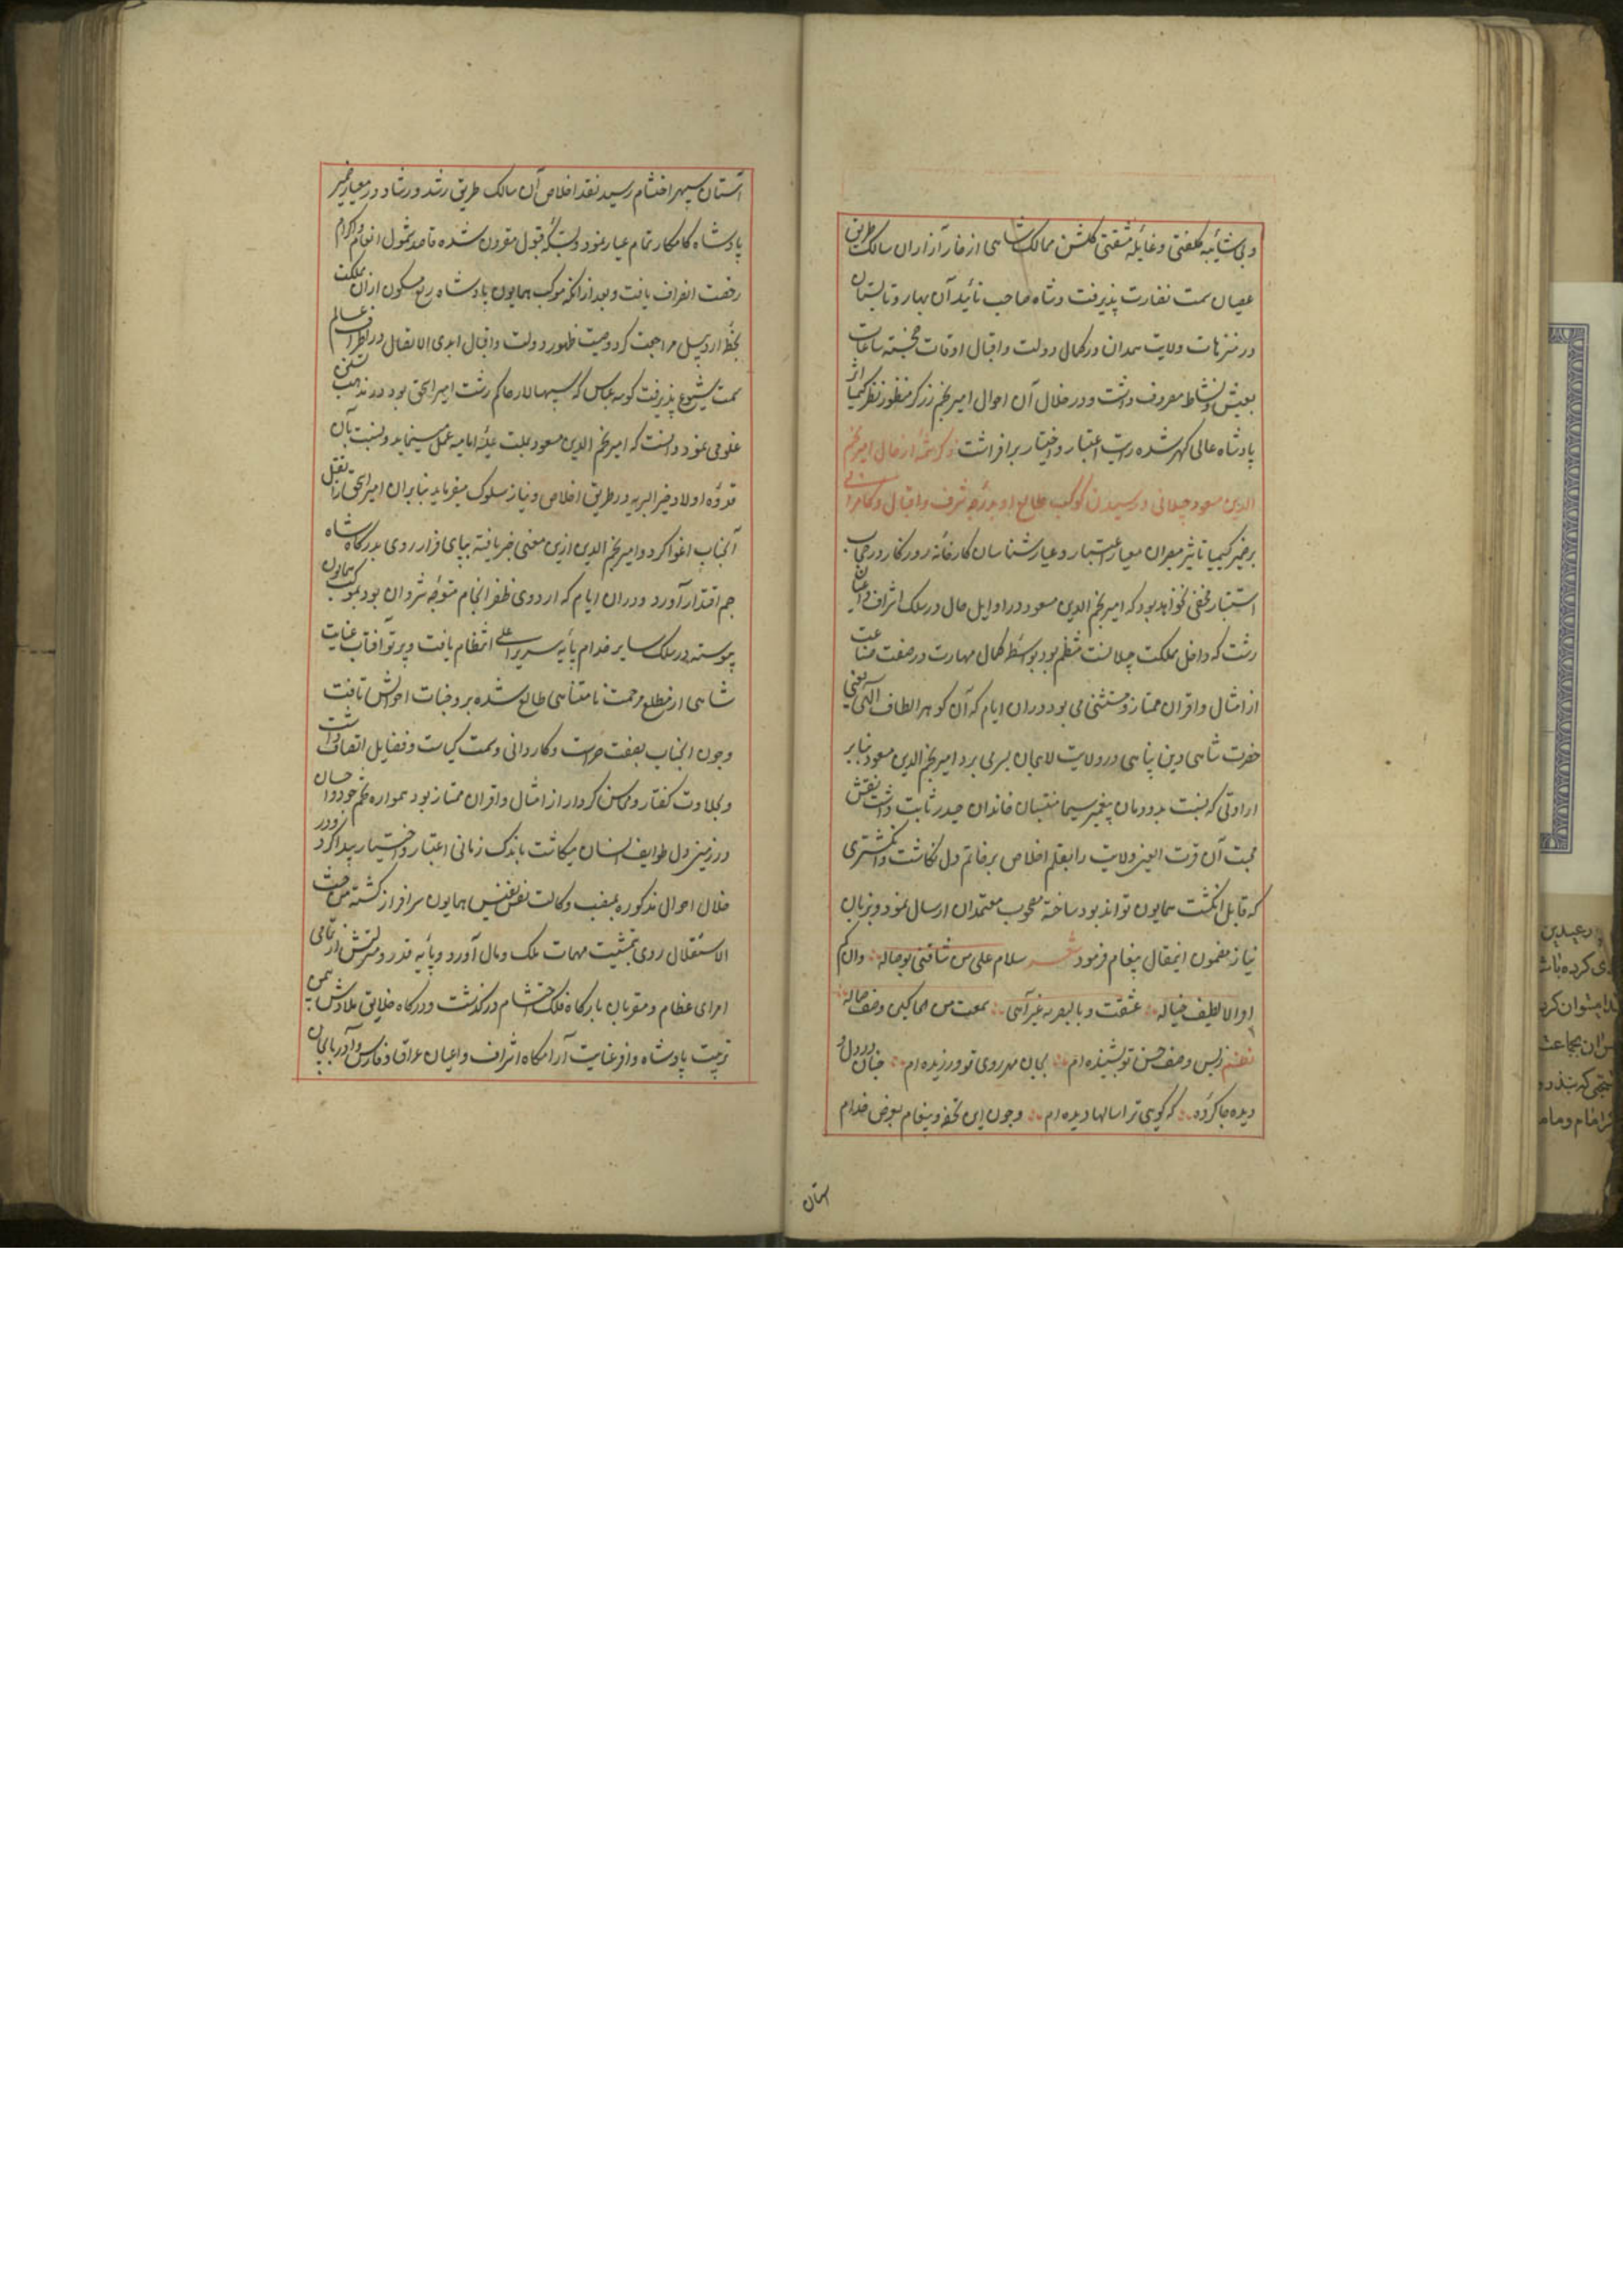 و بی شائبه کلفتی و غایله مشقتی کلشن ممالک شاهی از خار آزاران سالک طریق
عصیان سمت نضارت پذیرفت و شاه صاحب تائید آن بهار و تابستان
در منزهات ولایت همدان در کمال دولت و اقبال اوقات خجسته ساعات
بعیش و نشاط مصروف داشت و در خلال آن احوال امیر نجم زرکر منظور نظر کیمیا اثر
پادشاه عالی کهر شده رایت اعتبار و اختیار برافراشت ذکر شمهٔ از حال امیر نجم
الدین مسعود جیلانی و رسیدن کوکب طالع او بدرجه شرف و اقبال و کامرانی
بر ضمیر کیمیا تاثیر مبصران معیار اعتبار و عیار شناسان کارخانه روزکار در حجاب
استتار مخفی نخواهد بود که امیر نجم الدین مسعود در اوایل حال در سلک اشراف و اعیان
رشت که داخل مملکت جیلانست منتظم بود بواسطه کمال مهارت در صنعت صناعت
از امثال و اقران ممتاز و مستثنی می بود دران ایام که آن کوهر الطاف الهی یعنی
حضرت شاهی دین پناهی در ولایت لاهجان بسر می برد امیر نجم الدین مسعود بنابر
ارادتی که نسبت بدودمان پیغمبر سیما منتسبان خاندان حیدر ثابت داشت نقش
محبت آن قرت العین ولایت را بقلم اخلاص بر خاتم دل نکاشت و انکشتری
که قابل انکشت همایون تواند بود ساخته مصحوب معتمدان ارسال نمود و بزبان
نیاز مضمون اینمقال پیغام فرمود شعر سلام علی من شاقنی بوصاله وان لم
اراه الا لطیف خیاله عشقت و ما ابصرته غیر آنی سمعت من الحاکین وصف جماله
نظم ز بس وصف حسن تو بشنیده ام بجان مهر روی تو ورزیده ام چنان در دل
دیده جا کردهٔ که کویی ترا سالها دیده ام و چون این تحفه و پیغام بعرض خدام
آستان
آستان سپهر احتشام رسید نقد اخلاص آن سالک طریق رشد و رشاد در معیار ضمیر
پادشاه کامکار تمام عیار نمود و بسکه قبول مقرون شده قاصد بشمول انعام و اکرام
رخصت انصراف یافت و بعد از انکه موکب همایون پادشاه ربع مسکون ازان مملکت
بخطه اردبیل مراجعت کرد و صیت ظهور دولت و اقبال ابدی الاتصال در اطراف عالم
سمت شیوع پذیرفت کوسه عباس که سپهسالار حاکم رشت امیر اسحق بود و در مذهب تسنن
غلو می نمود دانست که امیر نجم الدین مسعود بملت علیه امامیه عمل مینماید و نسبت بآن
قدوه اولاد خیر البریه در طریق اخلاص و نیاز سلوک میفرماید بنابران امیر اسحق را بقتل
آنجناب اغوا کرد و امیر نجم الدین ازین معنی خبر یافته بپای فرار روی بدرکاه شاه
جم اقتدار آورد و دران ایام که اردوی ظفر انجام متوجه شروان بود بموکب همایون
پیوسته در سلک سایر خدام پایه سریر اعلی انتظام یافت و پرتو آفتاب عنایت
شاهی از مطلع مرحمت نامتناهی طالع شده بر وجنات احوالش تافت
و چون آنجناب بصفت حراست و کاردانی و سمت کیاست و فضایل اتصاف داشت
و بحلاوت کفتار و محاسن کردار از امثال و اقران ممتاز بود همواره تخم جود و احسان
در زمین دل طوایف انسان میکاشت باندک زمانی اعتبار و اختیار پیدا کرد و در
خلال احوال مذکوره بمنصب وکالت نفس نفیس همایون سرافراز کشته من حیث
الاستقلال روی بتمشیت مهمات ملک و مال آورد و پایه قدر و منزلتش از تمامی
امرای عظام و مقربان بارکاه فلک احتشام درکذشت و درکاه خلایق ملاذش بیمن
تربیت پادشاه وافر عنایت آرامکاه اشراف و اعیان عراق و فارس و آذربایجان